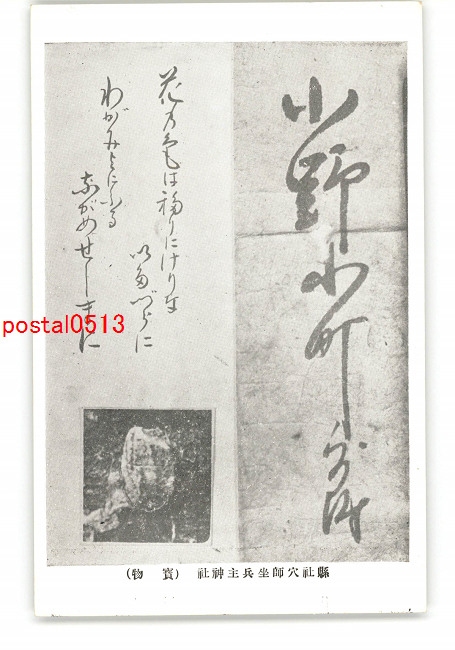 小野小町
花乃色は移りにけりな
いたづらに
わがみよにふる
ながめせしまに
postal0513
縣社穴師坐兵主神社 （寶物）